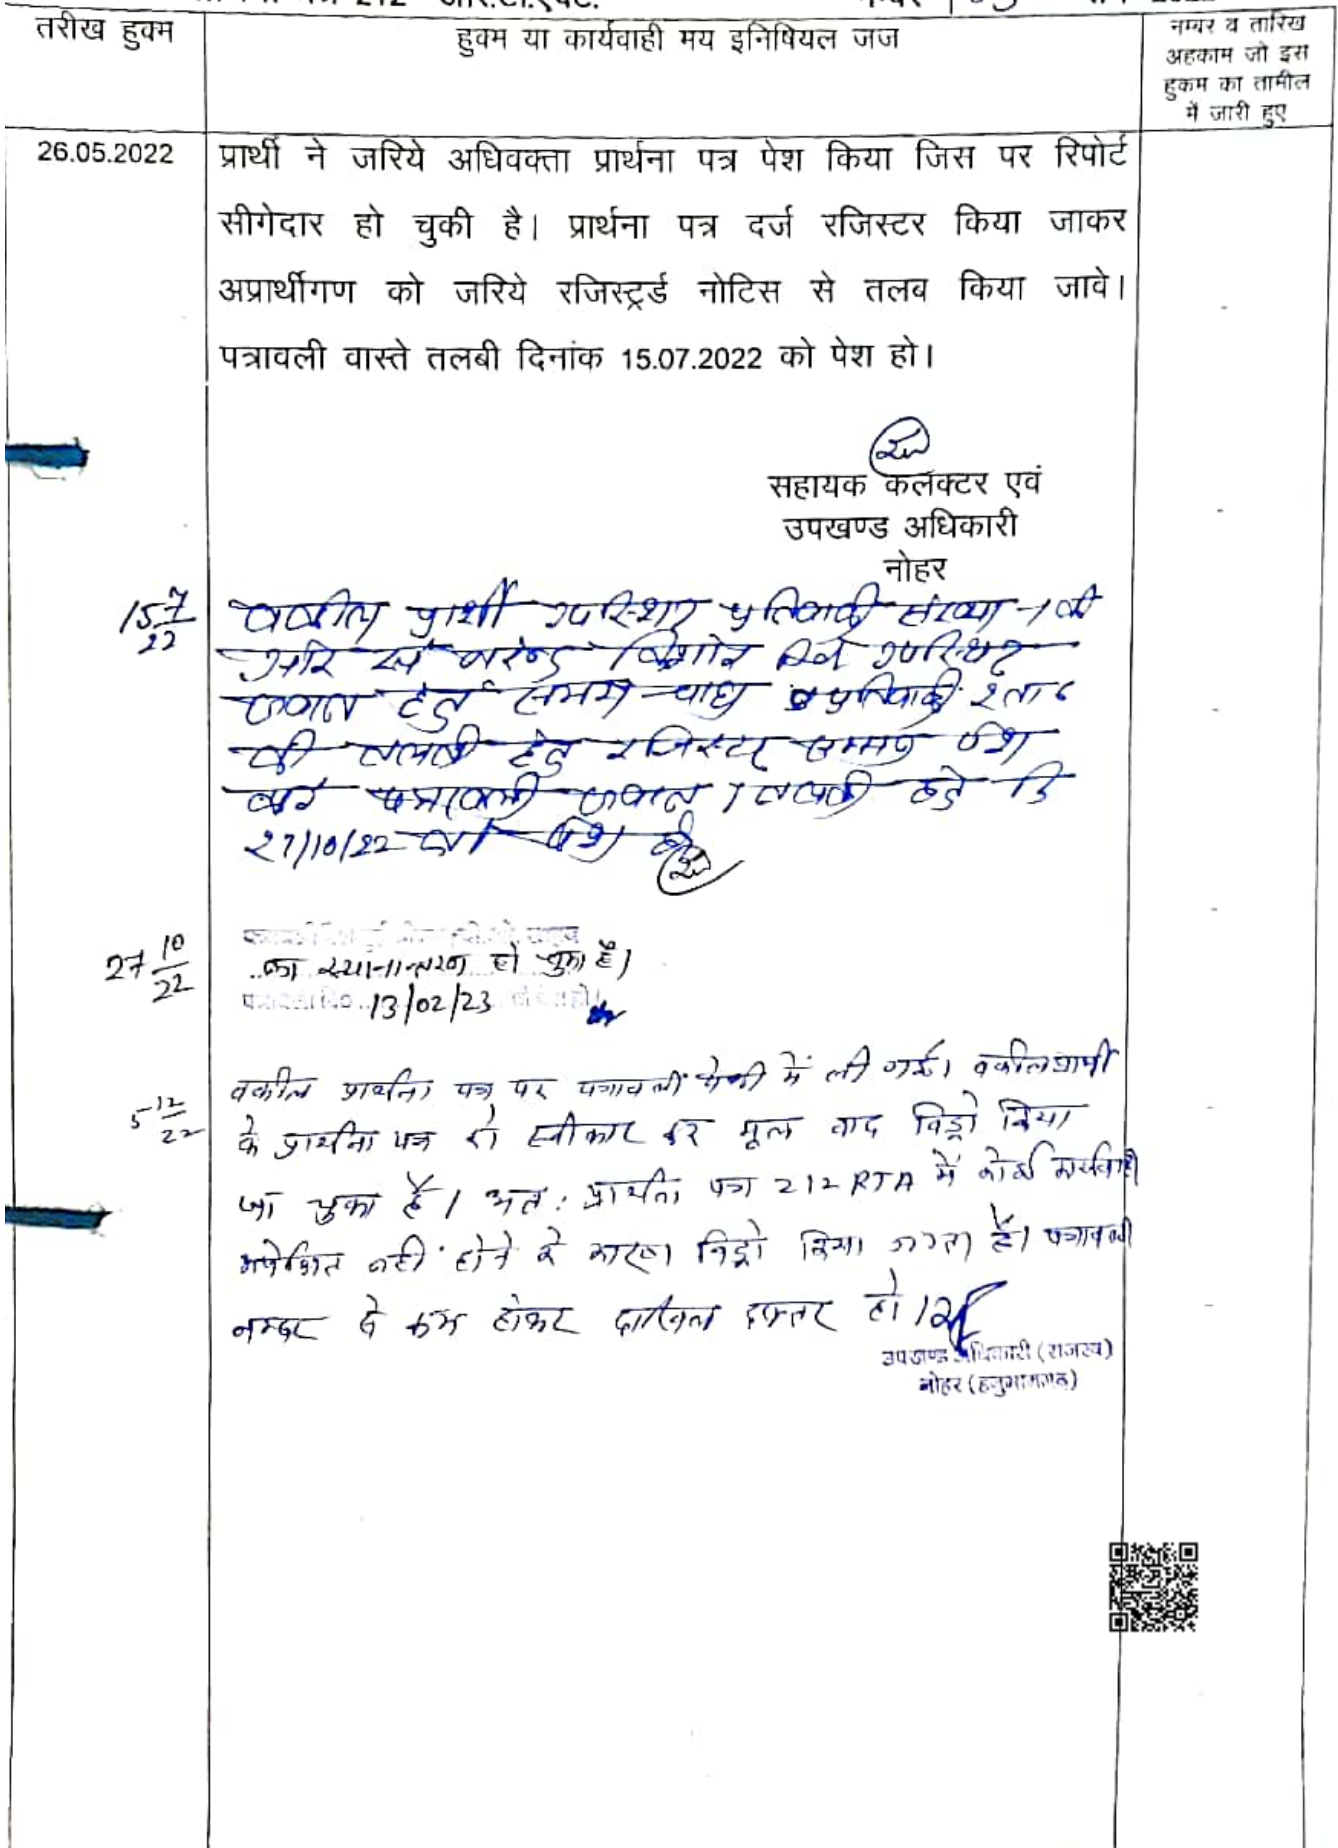 212 आर.टी.एक्ट.
तरीख हुक्म
हुक्म या कार्यवाही मय इनिषियल जज
नम्बर व तारिख
अहकाम जो इस
हुकम का तामील
में जारी हुए
26.05.2022
प्रार्थी ने जरिये अधिवक्ता प्रार्थना पत्र पेश किया जिस पर रिपोर्ट
सीगेदार हो चुकी है। प्रार्थना पत्र दर्ज रजिस्टर किया जाकर
अप्रार्थीगण को जरिये रजिस्ट्रर्ड नोटिस से तलब किया जावे।
पत्रावली वास्ते तलबी दिनांक 15.07.2022 को पेश हो।
सहायक कलक्टर एवं
उपखण्ड अधिकारी
नोहर
15 7/22
वकील प्रार्थी उपस्थित प्रतिवादी संख्या -1 की
ओर से नरेन्द्र किशोर उपस्थित
जवाब हेतु समय चाहा प्रतिवादी 2 ता 6
की तलबी हेतु रजिस्टर सम्मन पेश
करे पत्रावली जवाब / तलबी हेतु दि
27/10/22 को पेश हो
27 10/22
का स्थानान्तरण हो चुका है।
13/02/23
5 12/22
वकील प्रार्थना पत्र पर पत्रावली पेशी में ली गई। वकील प्रार्थी
के प्रार्थना पत्र को स्वीकार कर मूल वाद विड्रो किया
जा चुका है। अत: प्रार्थना पत्र 212 RTA में कोई कार्यवाही
अपेक्षित नहीं होने के कारण विड्रो किया जाता है। पत्रावली
नम्बर से कम होकर दाखिल दफ्तर हो।
उपखण्ड अधिकारी (राजस्व)
नोहर (हनुमानगढ़)